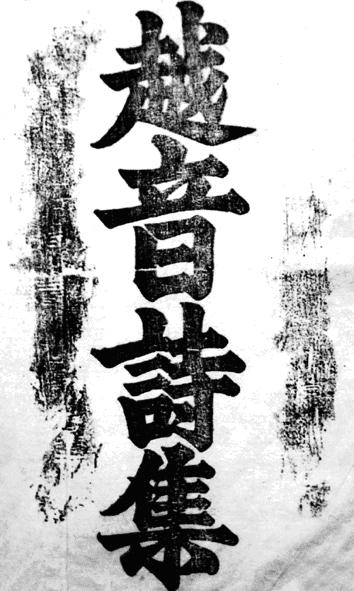 越音詩集